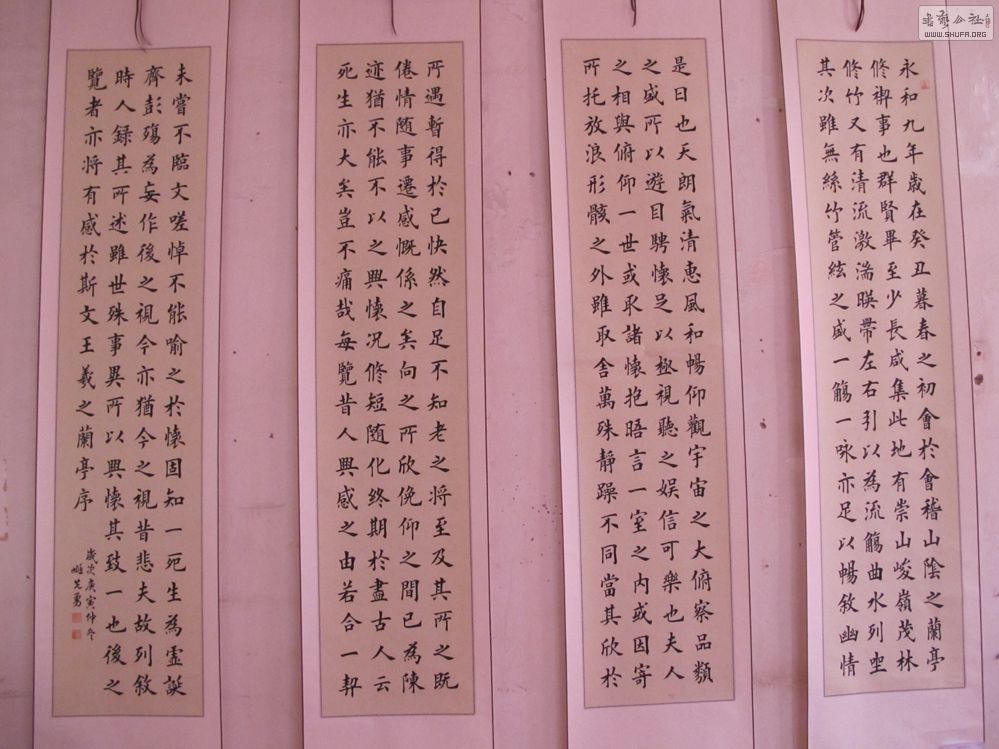 書法公社
WWW.SHUFA.ORG
永和九年歲在癸丑暮春之初會於會稽山陰之蘭亭
修禊事也群賢畢至少長咸集此地有崇山峻嶺茂林
修竹又有清流激湍暎帶左右引以為流觴曲水列坐
其次雖無絲竹管絃之盛一觴一咏亦足以暢敘幽情
是日也天朗氣清惠風和暢仰觀宇宙之大俯察品類
之盛所以遊目騁懷足以極視聽之娛信可樂也夫人
之相與俯仰一世或取諸懷抱晤言一室之內或因寄
所托放浪形骸之外雖取舍萬殊靜躁不同當其欣於
所遇暫得於己快然自足不知老之將至及其所之既
倦情随事遷感慨係之矣向之所欣俛仰之間已為陳
迹猶不能不以之興懷况修短随化終期於盡古人云
死生亦大矣豈不痛哉每覽昔人興感之由若合一契
未嘗不臨文嗟悼不能喻之於懷固知一死生為虛誕
齊彭殤為妄作後之視今亦猶今之視昔悲夫故列敘
時人録其所述雖世殊事異所以興懷其致一也後之
覽者亦將有感於斯文王羲之蘭亭序
歲次庚寅仲冬
先勇